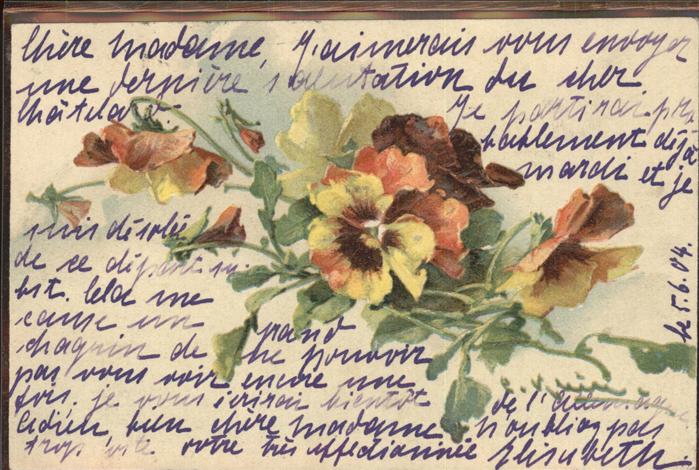 Chère madame, J'aimerais vous envoyer
une dernière salutation du cher
château.
Je partirai pro
bablement déjà
mardi et je
suis désolée
de ce départ su-
bit. Cela me
cause un grand
chagrin de ne pouvoir
pas vous voir encore une
fois. je vous écrirai bientôt de l'Allemagne
Adieu bien chère madame n'oubliez pas
trop vite votre très affectionnée Elisabeth.
le 5.6.04.
C. Klein